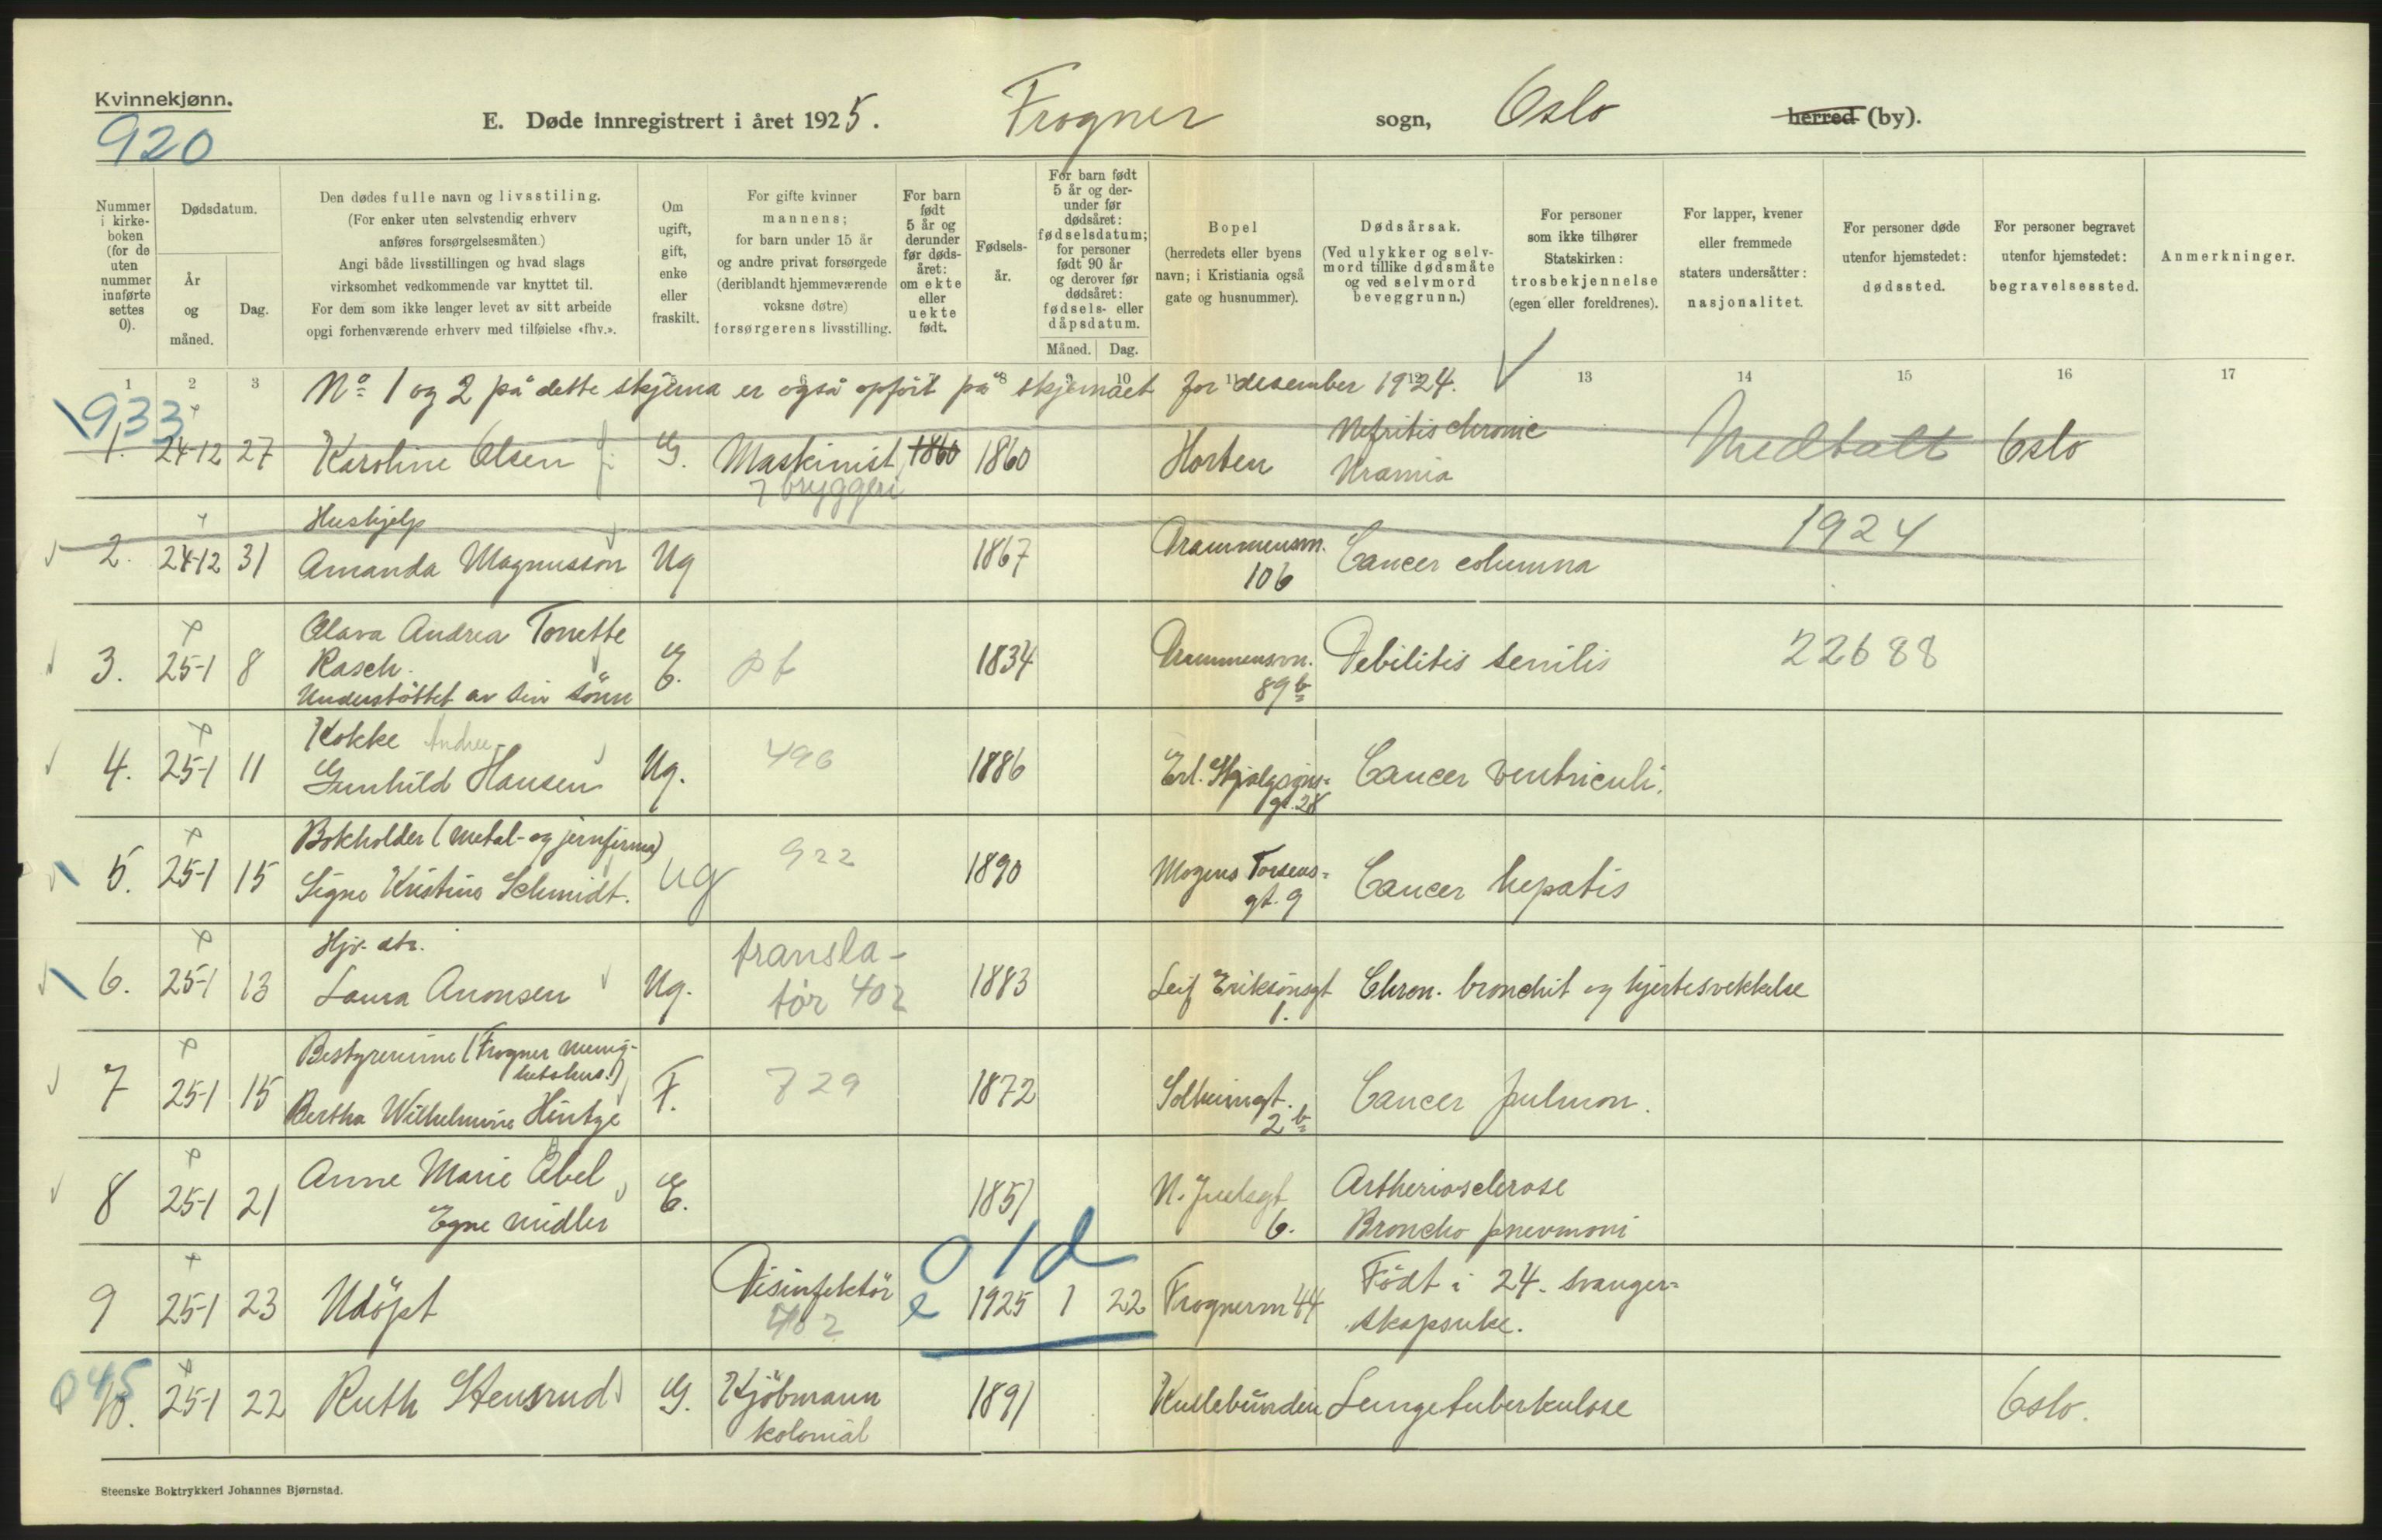 Kvinnekjønn.
920
E. Døde innregistrert i året 1925. Frogner sogn, Oslo herred (by).
Nummer i kirkeboken (for de uten nummer innførte settes 0).
Dødsdatum.
År og måned.
Dag.
Den dødes fulle navn og livsstilling.
(For enker uten selvstendig erhverv anføres forsørgelsesmåten.)
Angi både livsstillingen og hvad slags virksomhet vedkommende var knyttet til.
For dem som ikke lenger levet av sitt arbeide opgi forhenværende erhverv med tilføielse «fhv.».
Om ugift, gift, enke eller fraskilt.
For gifte kvinner mannens; for barn under 15 år og andre privat forsørgede (deriblandt hjemmeværende voksne døtre) forsørgerens livsstilling.
For barn født 5 år og derunder før dødsåret: om ekte eller uekte født.
Fødselsår.
For barn født 5 år og derunder før dødsåret: fødselsdatum; for personer født 90 år og derover før dødsåret: fødsels- eller dåpsdatum.
Måned. Dag.
Bopel (herredets eller byens navn; i Kristiania også gate og husnummer).
Dødsårsak. (Ved ulykker og selvmord tillike dødsmåte og ved selvmord beveggrunn.)
For personer som ikke tilhører Statskirken: trosbekjennelse (egen eller foreldrenes).
For lapper, kvener eller fremmede staters undersåtter: nasjonalitet.
For personer døde utenfor hjemstedet: dødssted.
For personer begravet utenfor hjemstedet: begravelsessted.
Anmerkninger.
1 2 3 6 8 9 10 11 12 13 14 15 16 17
No 1 og 2 på dette skjema er også opført på skjemaet for desember 1924.
933
1. 24-12 27 Karoline Olsen G. Maskinist 1860 1860 Horten Nefritis chronic Medtalt Oslo
bryggeri Uramia
Hushjelp 1924
2. 24-12 31 Amanda Magnusson Ug 1867 Drammensvn. 106 Cancer columna
Olava Andrea Tonette
3. 25-1 8 Rasch. E. pf 1834 Drammensvn. 89b Debilitis senilis 22688
Understøttet av sin sønn
Kokke Andree
4. 25-1 11 Gunhild Hansen Ug. 496 1886 Erl. Skjalgsøns= gt. 28 Cancer ventriculi.
Bokholder (metal- og jernfirma)
5. 25-1 15 Signe Kristine Schmidt. Ug 922 1890 Mogens Torsens= gt. 9 Cancer hepatis
Hjv. dtr.
6. 25-1 13 Laura Aronsen Ug. transla-tør 402 1883 Leif Eriksönsgt 1. Chron. bronchit og hjertesvekkelse
Bestyrerinne (Frogner menig-hetshus.)
7 25-1 15 Bertha Wilhelmine Hintze F. 729 1872 Solheimgt. 2b Cancer pulmon.
8 25-1 21 Anne Marie Abel E. 1851 N. Juelsgt 6. Artheriosclerose
Egne midler Broncho pnevmoni
0 1 d
9 25-1 23 Udöpt Disinfektör e 1925 1 22 Frognervn 44 Födt i 24. svanger=
402 skapsuke.
045
10. 25-1 22 Ruth Stensrud G. Kjöbmann 1891 Kullebunden Lungetuberkulose Oslo.
kolonial
Steenske Boktrykkeri Johannes Bjørnstad.